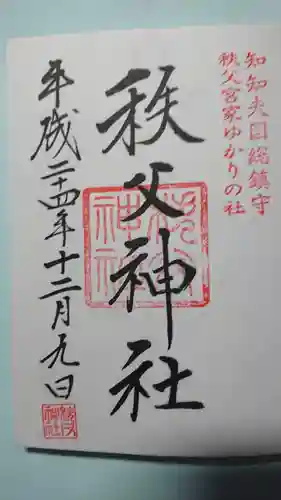 知知夫国総鎮守
秩父宮家ゆかりの社
秩父神社
平成二十四年十二月九日
秩父神社